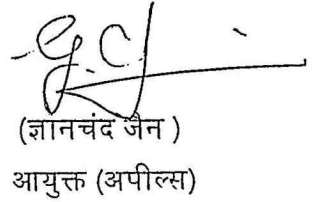 (ज्ञानचंद जैन )
आयुक्त (अपील्स)